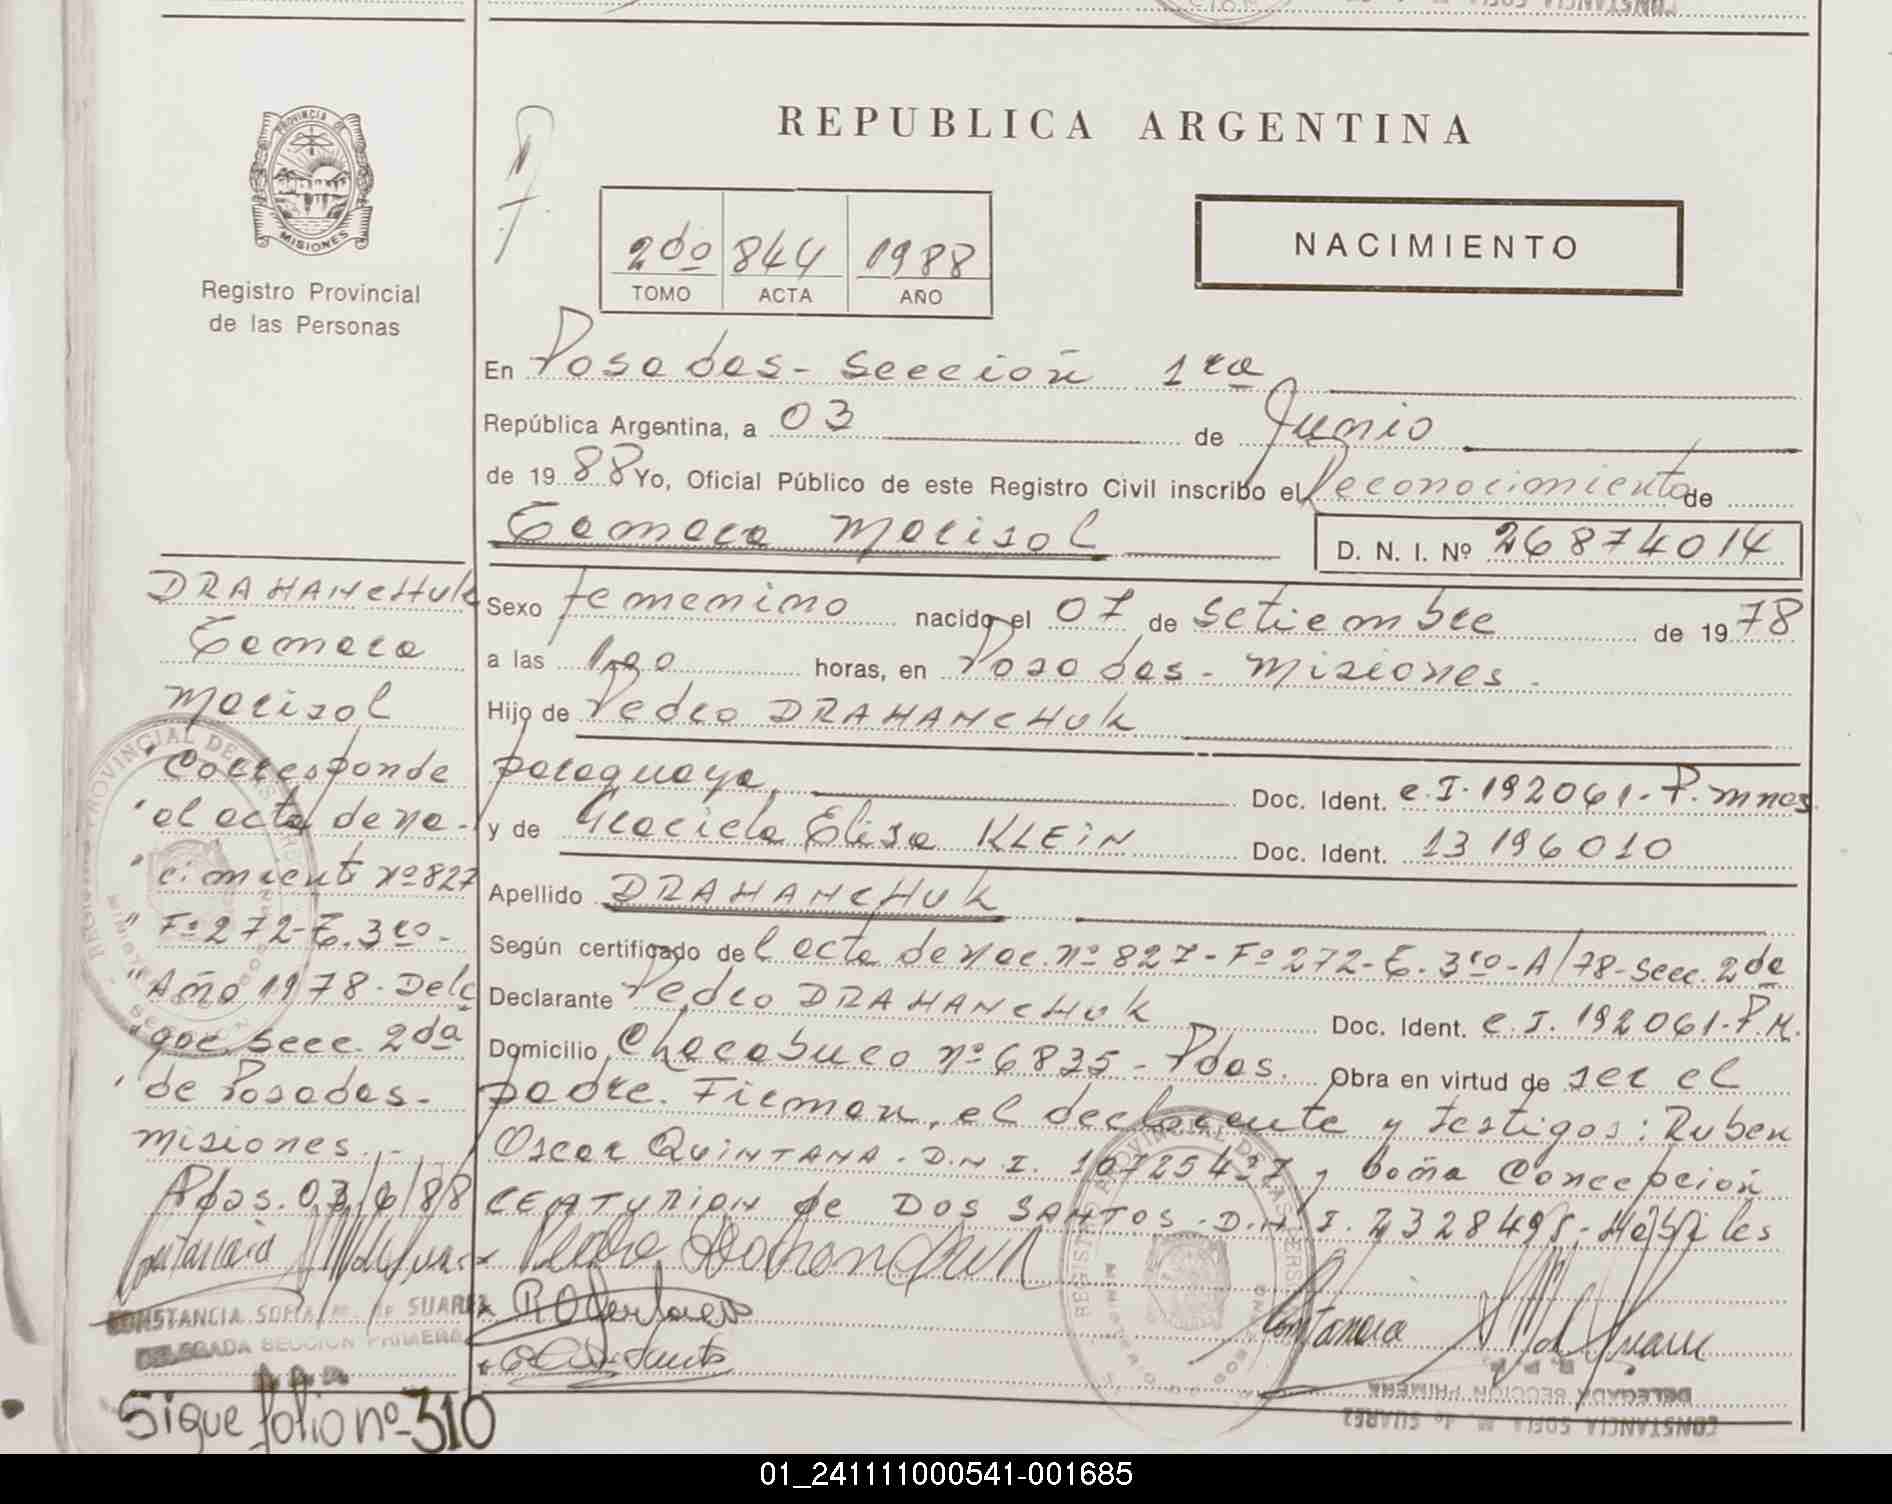 REPUBLICA ARGENTINA
PROVINCIA DE
MISIONES
Registro Provincial
de las Personas
2do 844 1988
TOMO ACTA AÑO
NACIMIENTO
En Posadas - Sección 1ra
República Argentina, a 03 de Junio
de 1988 Yo, Oficial Público de este Registro Civil inscribo el Reconocimiento de
Tamara Marisol D. N. I. Nº 26874014
Sexo femenino nacido el 07 de Setiembre de 1978
a las horas, en Posadas - Misiones.
Hijo de Pedro DRAHANCHUK
paraguaya. Doc. Ident. C.I. 192061. P. Mnes
y de Graciela Elisa KLEIN Doc. Ident. 13196010
Apellido DRAHANCHUK
Según certificado del acta de nac. nº 827 - Fº 272 - T. 3ro - A/78 - Secc. 2da
Declarante Pedro DRAHANCHUK Doc. Ident. C.I. 192061. P.M.
Domicilio Chacabuco nº 6835 - Pdas. Obra en virtud de ser el
padre. Firman, el declarante y testigos: Ruben
Oscar QUINTANA - D.N.I. y doña Concepción
CENTURION de DOS SANTOS - D.N.I. Hábiles
DRAHANCHUK
Tamara
Marisol
Corresponde
al acta de na-
cimiento nº 827
Fº 272 - T. 3ro -
Año 1978 - Dele
gac. Secc. 2da
de Posadas -
Misiones. -
Pdas. 03/6/88
CONSTANCIA SOFIA M. de SUAREZ
DELEGADA SECCION PRIMERA
DELEGADA SECCION PRIMERA
CONSTANCIA SOFIA M. de SUAREZ
Sigue folio nº 310
01_241111000541-001685